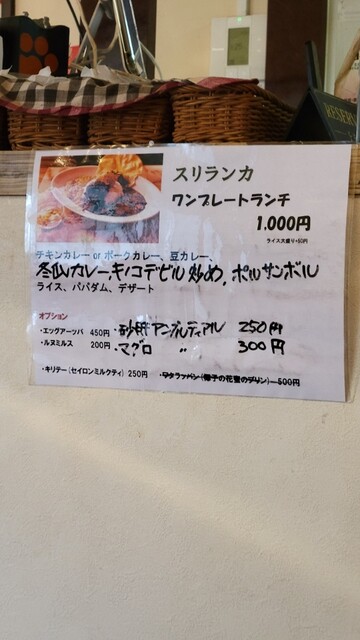 RESERVE
スリランカ
ワンプレートランチ
1.000円
ライス大盛り+50円
チキンカレー or ポークカレー、豆カレー、
冬瓜カレー、キノコデビル炒め、ポルサンボル
ライス、パパダム、デザート
オプション
・エッグアーッパ 450円 ・砂肝アンブルティヤル 250円
・ルヌミルス 200円 ・マグロ 〃 300円
・キリテー(セイロンミルクティ) 250円 ・ワタラッパン(椰子の花蜜のプリン) 500円